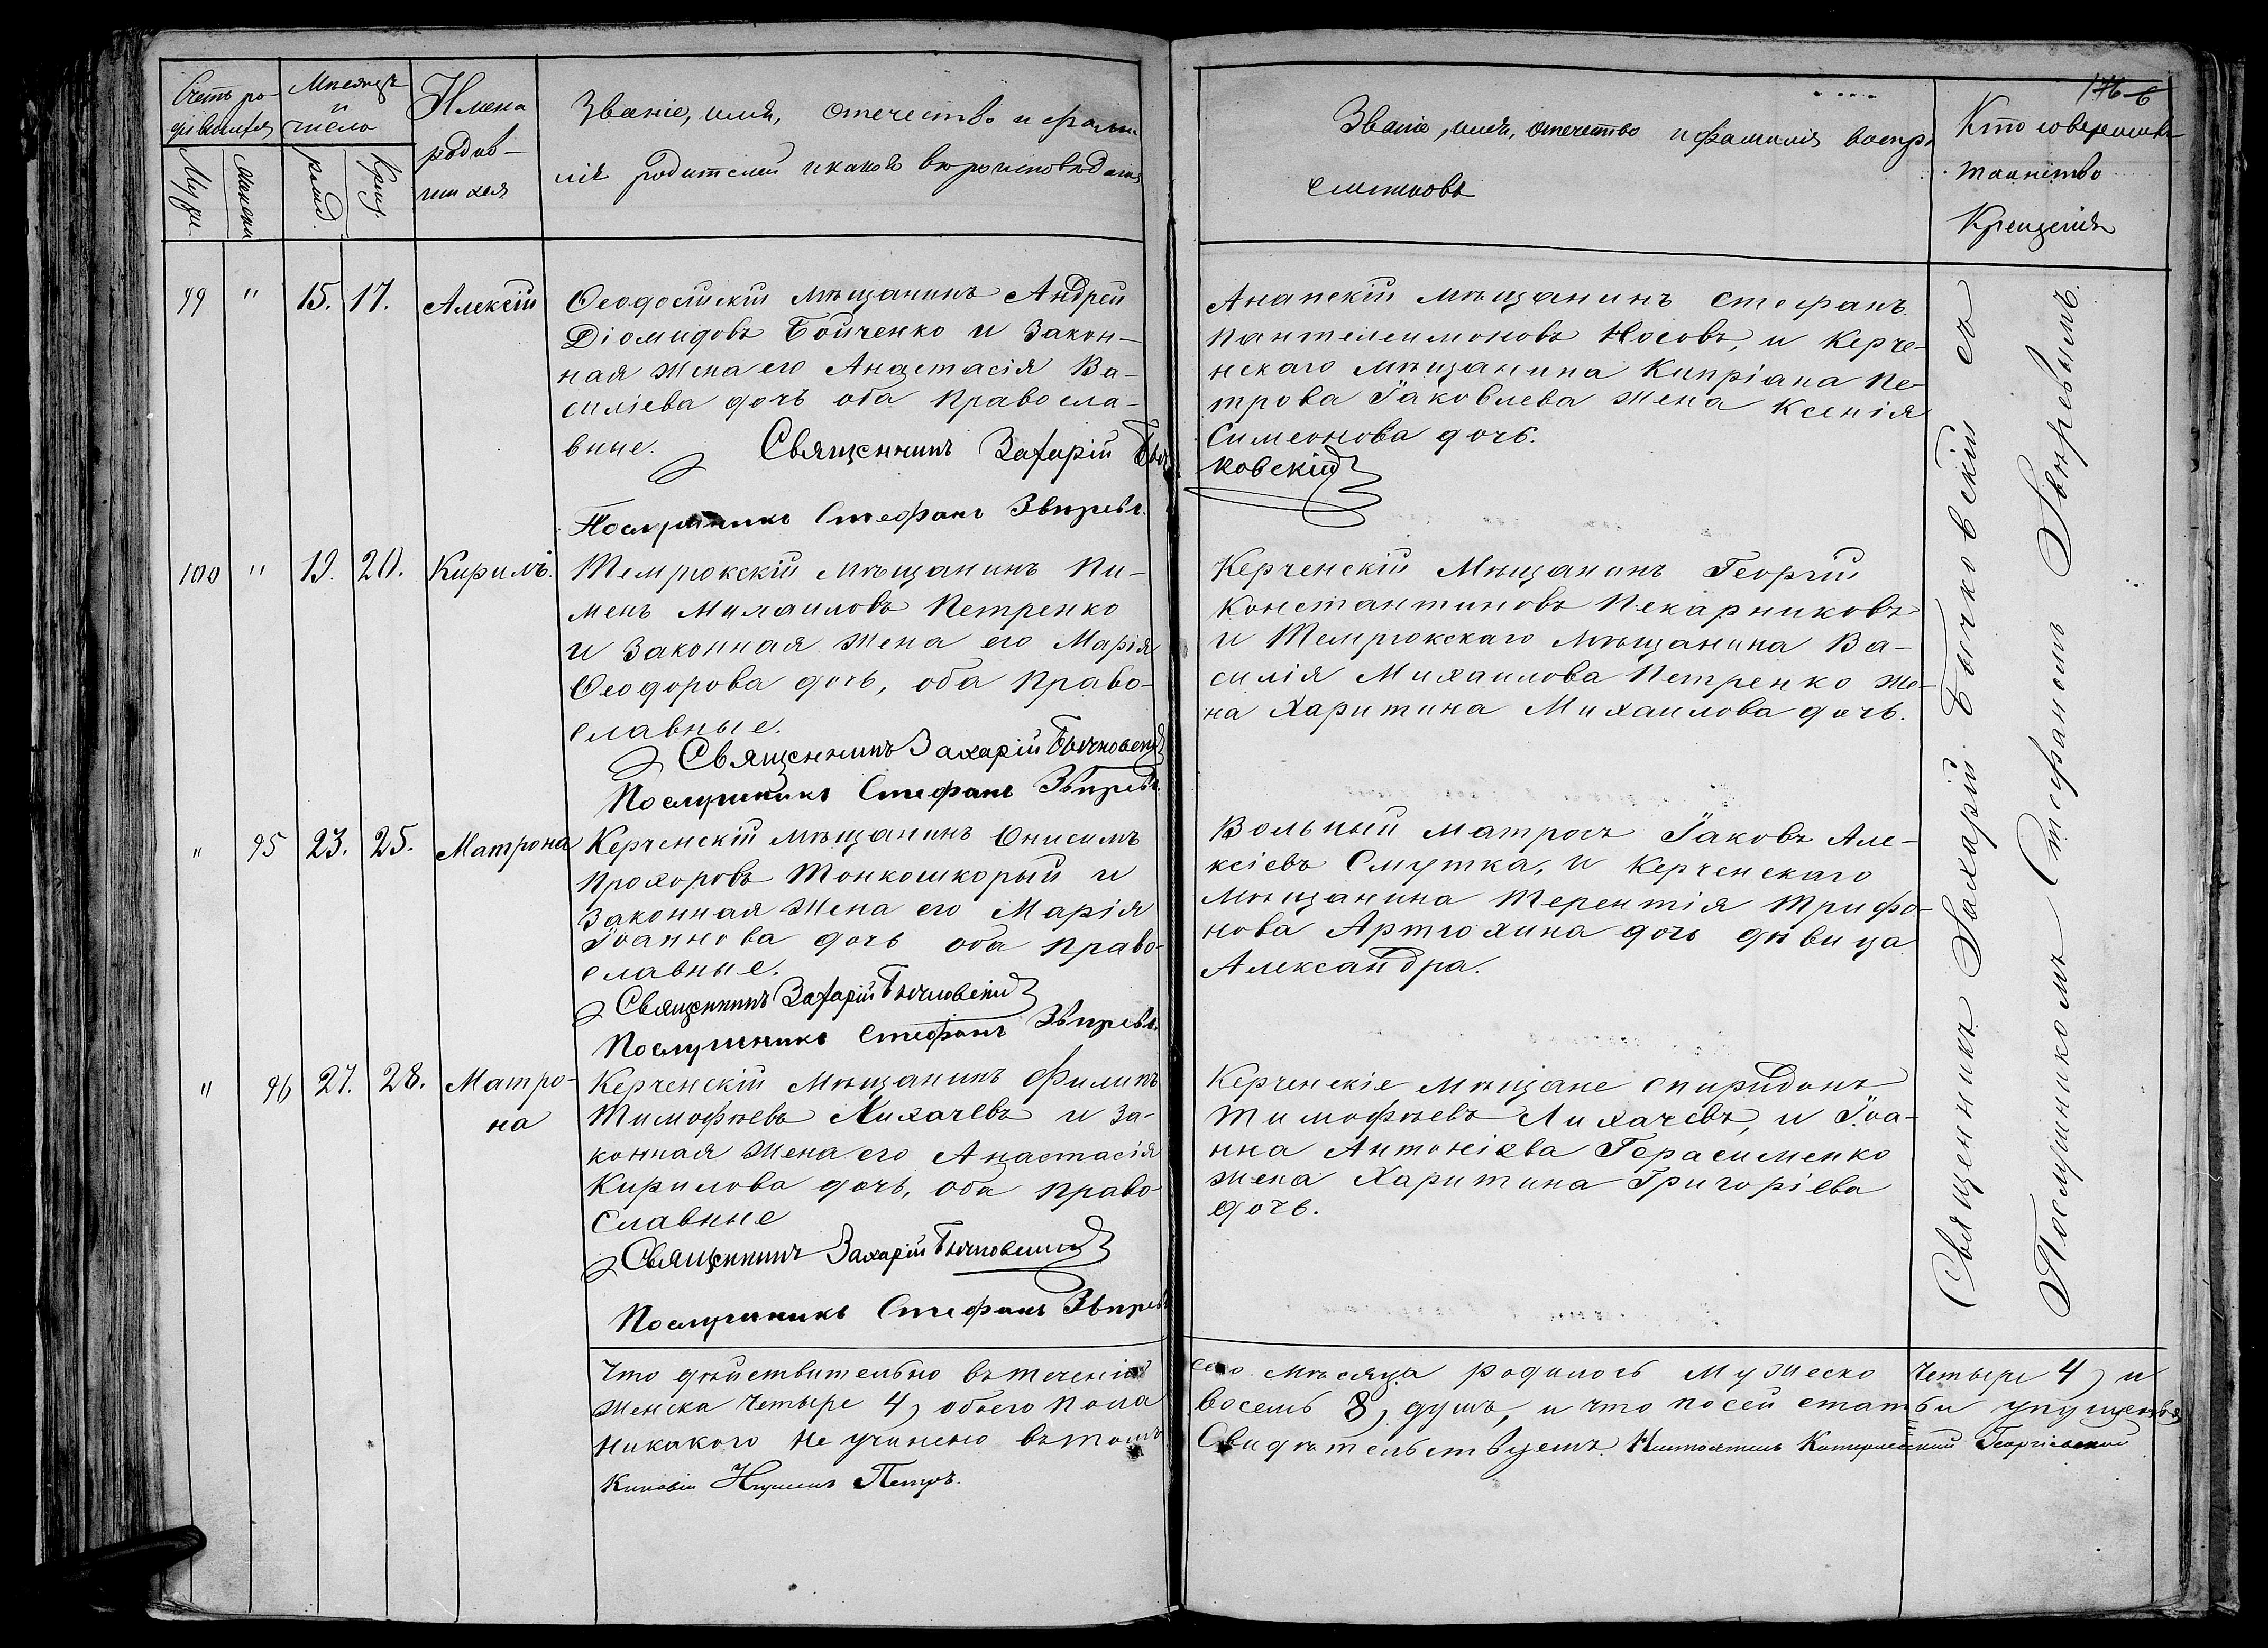 Счетъ ро-
дившихся
Мѣсяцъ
и
число
Имена
родив-
шихся
Муже.
Женски
рожд.
Крещ.
Званіе, имя, отечество и фами
лія родителей и какого вѣроисповѣданія
Званіе, имя, отечество и фамилія воспрі
емниковъ
176
Кто совершалъ
таинство
Крещенія
99 " 15. 17. Алексій
Ѳеодосійскій мѣщанинъ Андрей
Діомидовъ Бойченко и закон-
ная жена его Анастасія Ва-
силіева дочь оба правосла-
вные.
Священникъ Захарій Быч
Послушникъ Стефанъ Звѣревъ.
Анапскій мѣщанинъ Стефанъ
Пантелеимоновъ Носовъ, и Керче-
нскаго мѣщанина Кипріана Пе-
трова Іаковлева жена Ксенія
Симеонова дочь.
ковскій
100 " 19. 20. Кирилъ.
Темрюкскій мѣщанинъ Пи-
менъ Михаиловъ Петренко
и законная жена его Марія
Ѳеодорова дочь, оба право-
славные.
Священникъ Захарій Бычковскій
Послушникъ Стефанъ Звѣревъ.
Керченскій Мѣщанинъ Георгій
Константиновъ Пекарниковъ
и Темрюкскаго мѣщанина Ва-
силія Михаилова Петренко же-
на Харитина Михаилова дочь.
" 95 23. 25. Матрона
Керченскій мѣщанинъ Онисимъ
Прохоровъ Тонкошкорый и
законная жена его Марія
Іоаннова дочь оба право-
славные.
Священникъ Захарій Бычковскій
Послушникъ Стефанъ Звѣревъ.
Вольный матросъ Іаковъ Але-
ксіевъ Смутка, и Керченскаго
мѣщанина Терентія Трифо-
нова Артюхина дочь дѣвица
Александра.
" 96 27. 28. Матро-
на
Керченскій Мѣщанинъ Филипъ
Тимофѣевъ Лихачевъ и за-
конная жена его Анастасія
Кирилова дочь, оба право-
славные
Священникъ Захарій Бычковскій
Послушникъ Стефанъ Звѣревъ
Керченскіе мѣщане Спиридонъ
Тимофѣевъ Лихачевъ, и Іоа-
нна Антоніева Герасименко
жена Харитина Григоріева
дочь.
Священникъ Захарій Бычковскій съ
Послушникомъ Стефаномъ Звѣревымъ.
Что дѣйствительно въ теченіи сего мѣсяца родилось мужеско Четыре 4, и
женска Четыре 4, обоего пола восемь 8, душъ, и что по сей статьи упущенія
никакого не учинено въ томъ Свидѣтельствуемъ. Настоятель Катерлеской Георгіевской
Киновіи Игуменъ Петръ.